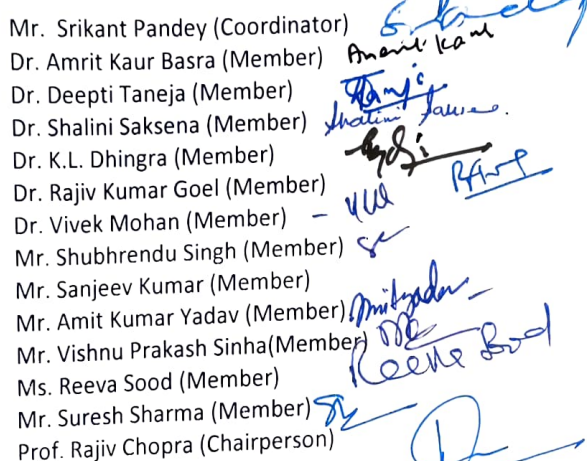 Mr. Srikant Pandey (Coordinator)
Dr. Amrit Kaur Basra (Member) Amrit Kaur
Dr. Deepti Taneja (Member)
Dr. Shalini Saksena (Member) Shalini Saksena
Dr. K.L. Dhingra (Member)
Dr. Rajiv Kumar Goel (Member)
Dr. Vivek Mohan (Member)
Mr. Shubhrendu Singh (Member)
Mr. Sanjeev Kumar (Member)
Mr. Amit Kumar Yadav (Member) Amityadav
Mr. Vishnu Prakash Sinha(Member)
Ms. Reeva Sood (Member) Reeva Sood
Mr. Suresh Sharma (Member)
Prof. Rajiv Chopra (Chairperson)